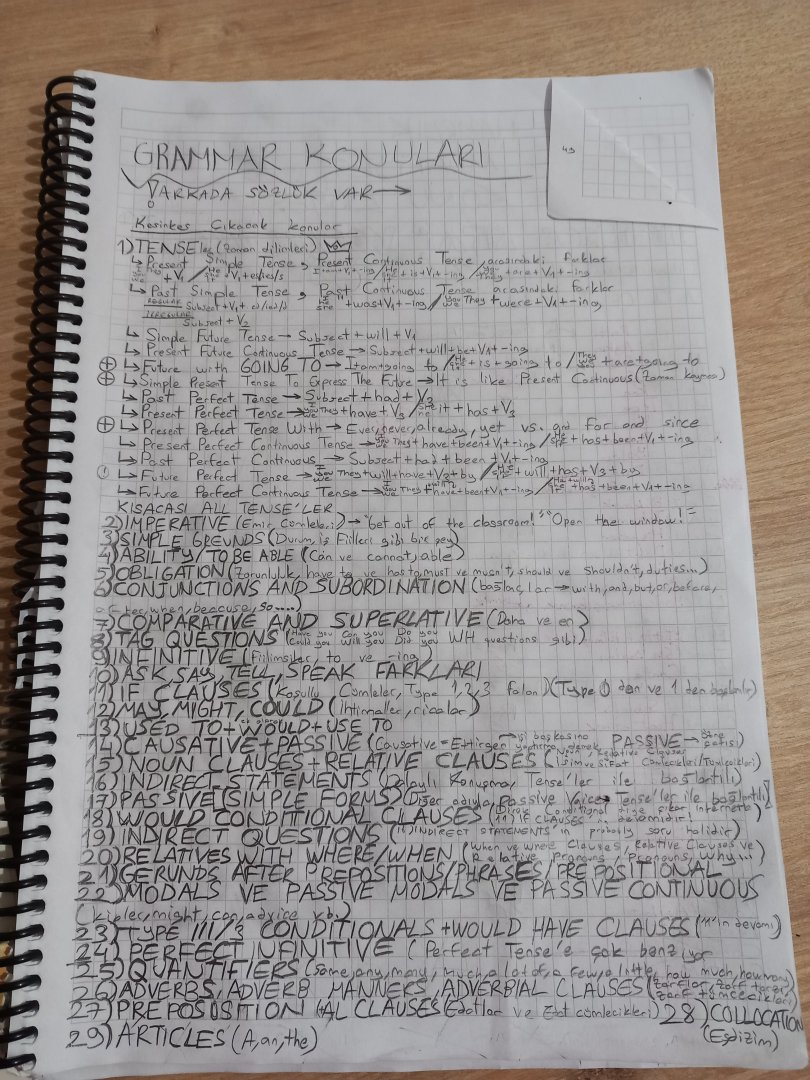 GRAMMAR KONULARI
! ARKADA SÖZLÜK VAR →
49
Kesinkes Çıkacak konular
1) TENSEler (zaman dilimleri)
↳ Present Simple Tense, Present Continuous Tense arasındaki farklar
+V1 / He She it +V1+es/ies/s I+am+V1+-ing / He +is+V1+-ing / They +are+V1+-ing
↳ Past Simple Tense, Past Continuous Tense arasındaki farklar
REGULAR Subject+V1+ed/ied/d +was+V1+-ing / you we They +were+V1+-ing
IRREGULAR Subject+V2
↳ Simple Future Tense → Subject+will+V1
↳ Present Future Continuous Tense → Subject+will+be+V1+-ing
⊕ ↳ Future with GOING TO → I+am+going to / +is+going to / They +are+going to
⊕ ↳ Simple Present Tense To Express The Future → It is like Present Continuous (zaman kayması)
↳ Past Perfect Tense → Subject+had+V3
↳ Present Perfect Tense → They+have+V3 / it+has+V3
⊕ ↳ Present Perfect Tense With → Ever, never, already, yet vs. and for and since
↳ Present Perfect Continuous Tense → you we They+have+been+V1+-ing / +has+been+V1+-ing
↳ Past Perfect Continuous → Subsect+had+been+V1+-ing
! ↳ Future Perfect Tense → I you we They+will+have+V3+by / +will+has+V3+by
↳ Future Perfect Continuous Tense → They +have+been+V1+-ing / +has+been+V1+-ing
KISACASI ALL TENSE'LER
2) IMPERATIVE (Emir Cümleleri) → "Get out of the classroom!" "Open the window!"
3) SIMPLE GREUNDS (Durum, iş Fiilleri gibi bir şey)
4) ABILITY/TO BE ABLE (Can ve cannot, able)
5) OBLIGATION (Zorunluluk, have to ve has to, must ve musn't, should ve shouldn't, duties...)
6) CONJUNCTIONS AND SUBORDINATION (bağlaçlar → with, and, but, or, before,
after, when, beacuse, so....)
7) COMPARATIVE AND SUPERLATIVE (Daha ve en)
8) TAG QUESTIONS (Have you Can you Do you Could you Will you Did you WH questions gibi)
9) INFINITIVE (Fiilimsiler, to ve ring)
10) ASK, SAY, TELL, SPEAK FARKLARI
11) IF CLAUSES (Koşullu Cümleler, Type 1,2,3 falan) (Type 0 dan ve 1 den başlanılır)
12) MAY, MIGHT, COULD (İhtimaller, ricalar)
13) USED TO + WOULD + USE TO
14) CAUSATIVE + PASSIVE (Causative = Ettirgen → işi başkasına yaptırma PASSIVE →
15) NOUN CLAUSES + RELATIVE CLAUSES (isim ve sıfat Cümlecikleri/Tümcecikleri)
16) INDIRECT STATEMENTS (Dolaylı Konuşma, Tense'ler ile bağlantılı)
17) PASSIVE (SIMPLE FORMS) (Diğer adıyla, passive Voice → Tense'ler ile bağlantılı)
18) WOULD CONDITIONAL CLAUSES ( conditional diye çıkar internette 11) IF CLAUSES devamıdır!
19) INDIRECT QUESTIONS (16) INDIRECT STATEMENTS'in probably soru halidir)
20) RELATIVES WITH WHERE/WHEN (When ve where Clauses, Relative Clauses ve Relative Pronouns / Pronouns, why...)
21) GERUNDS AFTER PREPOSITIONS/PHRASES/PREPOSITIONAL
22) MODALS VE PASSIVE MODALS VE PASSIVE CONTINUOUS
(kipler, might, can, advice vb.)
23) TYPE III/3 CONDITIONALS + WOULD HAVE CLAUSES ("11"in devamı)
24) PERFECT INFINITIVE (Perfect Tense'e çok benziyor
25) QUANTIFIERS (Some, any, many, much, a lot of, a few, a little, how much, how many)
26) ADVERBS, ADVERB MANNERS, ADVERBIAL CLAUSES (zarflar, zarf tarzı, zarf tümcecikleri)
27) PREPOSOSITION (AL CLAUSES (Edatlar ve Edat cümlecikleri) 28) COLLOCATION
(Eşdizim)
29) ARTICLES (A, an, the)